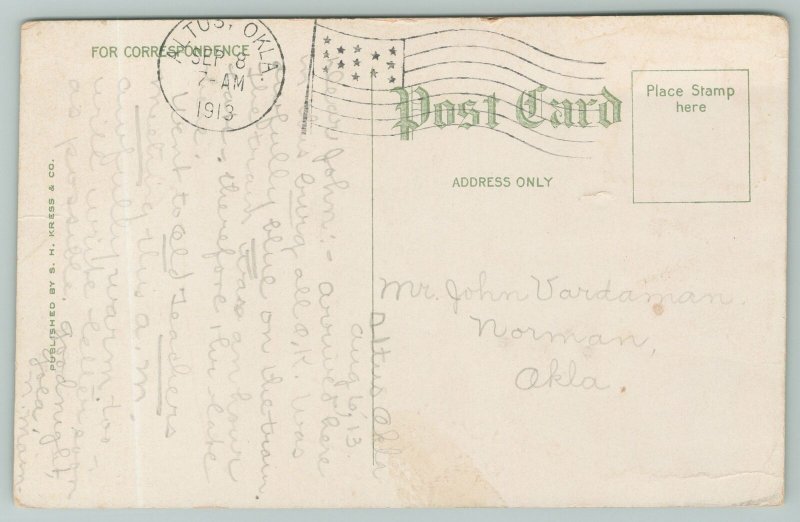 FOR CORRESPONDENCE
ALTUS, OKLA.
SEP 8
7-AM
1913
Post Card
Place Stamp
here
ADDRESS ONLY
Mr. John Vardaman
Norman,
Okla.
Altus Okla
aug 6, 13.
Dear John:- arrived here
in this burg all O.K. Was
awfully blue on the train.
The train was an hour
late, therefore 1 hr late
Went to Old Teachers
meeting this a.m.
awfully warm too -
will write letter soon
as possible. goodnight,
PUBLISHED BY S. H. KRESS & CO.